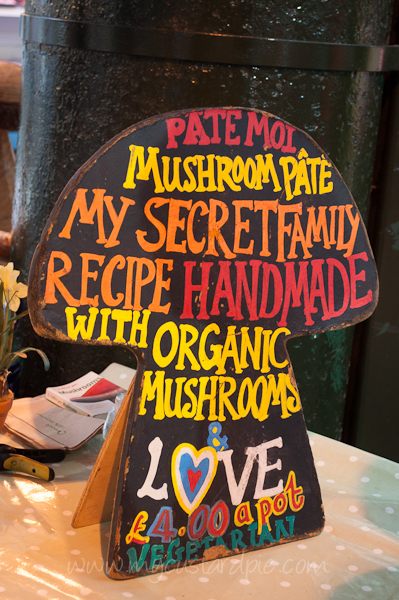 PATE MOI
MUSHROOM PÂTÉ
MY SECRET FAMILY
RECIPE HANDMADE
WITH ORGANIC
MUSHROOMS
&
LOVE
£4.00 a pot
VEGETARIAN
www.mycustardpie.com